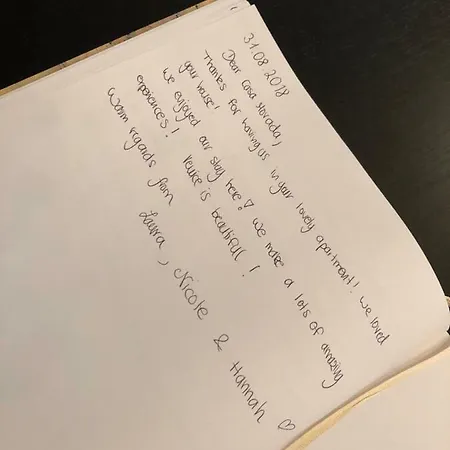 31.08.2018
Dear Casa Morada,
Thanks for having us in your lovely apartment! We loved
your house!
We enjoyed our stay here! We make a lots of amazing
experiences! Venice is beautiful!
Warm regards from Laura, Nicole & Hannah ♡